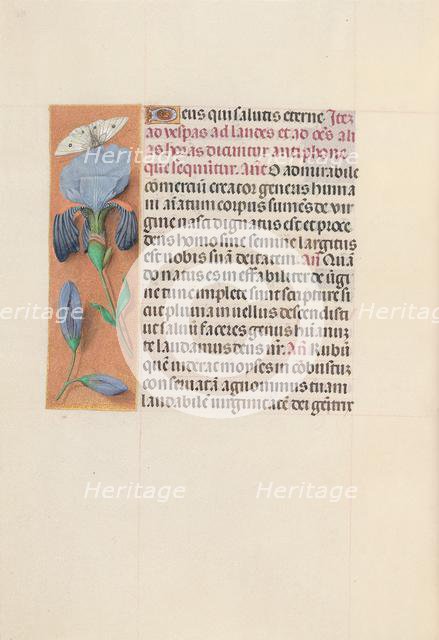 Deus qui salutis eterne. Ite3
ad vespas ad laudes et ad oe͂s ali
as horas dicuntur antiphone
que sequūtur. Añe O admirabile
comerciū creator generis huma
ni aīatum corpus sumēs de vir
gine nasci dignatus est et proce
dens homo sine semine largitus
est nobis suā deitatem. Añ Quā
do natus es in effabiliter de v̄gi
ne tunc implete sunt scripture si
cut pluvia in vellus descendisti
ut salvū faceres genus humanū
te laudamus deus nr̄. Añ Rubū
quē viderat moyses incōbustū
conservatā agnovimus tuam
laudabilē virginitatē dei genitrix
Heritage
Heritage
Heritage
Heritage
Heritage
Heritage
Heritage